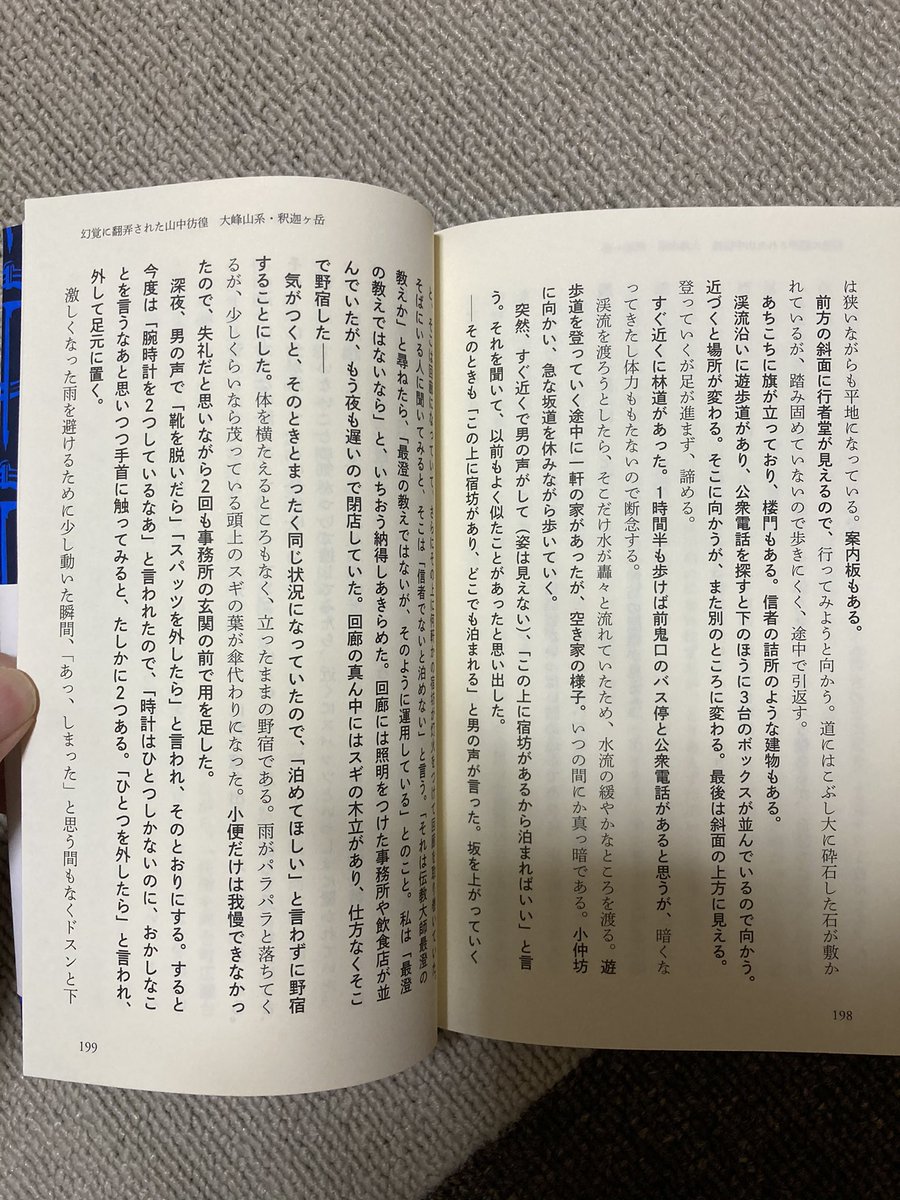 は狭いながらも平地になっている。案内板もある。
前方の斜面に行者堂が見えるので、行ってみようと向かう。道にはこぶし大に砕石した石が敷か
れているが、踏み固めていないので歩きにくく、途中で引返す。
あちこちに旗が立っており、楼門もある。信者の詰所のような建物もある。
渓流沿いに遊歩道があり、公衆電話を探すと下のほうに3台のボックスが並んでいるので向かう。
近づくと場所が変わる。そこに向かうが、また別のところに変わる。最後は斜面の上方に見える。
登っていくが足が進まず、諦める。
すぐ近くに林道があった。1時間半も歩けば前鬼口のバス停と公衆電話があると思うが、暗くな
ってきたし体力ももたないので断念する。
渓流を渡ろうとしたら、そこだけ水が轟々と流れていたため、水流の緩やかなところを渡る。遊
歩道を登っていく途中に一軒の家があったが、空き家の様子。いつの間にか真っ暗である。小仲坊
に向かい、急な坂道を休みながら歩いていく。
突然、すぐ近くで男の声がして（姿は見えない）、「この上に宿坊があるから泊まればいい」と言
う。それを聞いて、以前もよく似たことがあったと思い出した。
――そのときも「この上に宿坊があり、どこでも泊まれる」と男の声が言った。坂を上がっていく
198
幻覚に翻弄された山中彷徨　大峰山系・釈迦ヶ岳
そばにいる人に聞いてみると、そこは「信者でないと泊めない」と言う。「それは伝教大師最澄の
教えか」と尋ねたら、「最澄の教えではないが、そのように運用している」とのこと。私は「最澄
の教えではないなら」と、いちおう納得しあきらめた。回廊には照明をつけた事務所や飲食店が並
んでいたが、もう夜も遅いので閉店していた。回廊の真ん中にはスギの木立があり、仕方なくそこ
で野宿した――
気がつくと、そのときとまったく同じ状況になっていたので、「泊めてほしい」と言わずに野宿
することにした。体を横たえるところもなく、立ったままの野宿である。雨がパラパラと落ちてく
るが、少しくらいなら茂っている頭上のスギの葉が傘代わりになった。小便だけは我慢できなかっ
たので、失礼だと思いながら2回も事務所の玄関の前で用を足した。
深夜、男の声で「靴を脱いだら」「スパッツを外したら」と言われ、そのとおりにする。すると
今度は「腕時計を2つしているなあ」と言われたので、「時計はひとつしかないのに、おかしなこ
とを言うなあと思いつつ手首に触ってみると、たしかに2つある。「ひとつを外したら」と言われ、
外して足元に置く。
激しくなった雨を避けるために少し動いた瞬間、「あっ、しまった」と思う間もなくドスンと下
199